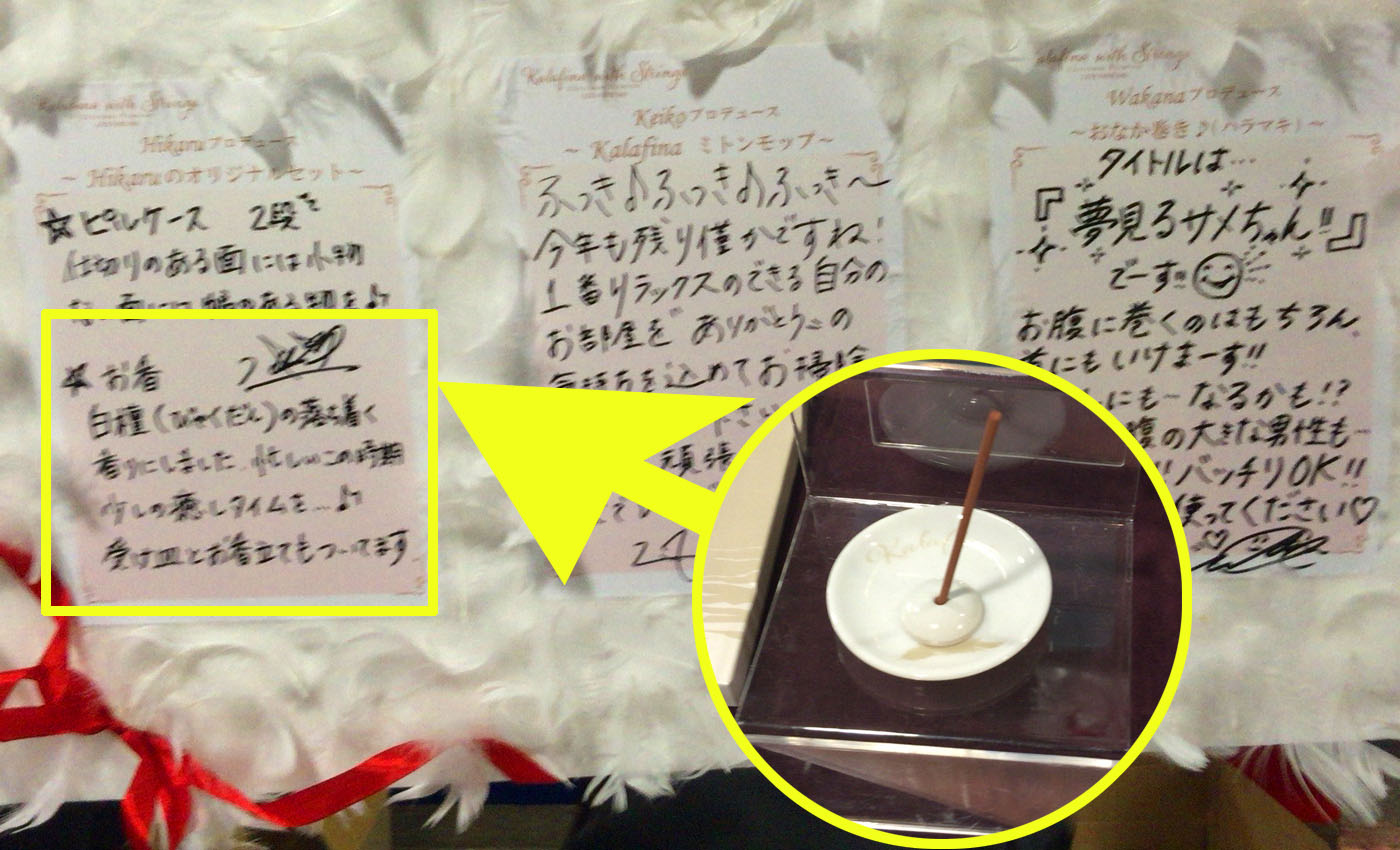 Kalafina with Strings
Hikaruプロデュース
～Hikaruのオリジナルセット～
☆ピルケース 2段で
仕切りのある面には小物
お香
白檀(びゃくだん)の落ち着く
香りにしました。忙しいこの時期
少しの癒しタイムを…♪
受け皿とお香立てもついてます。
Kalafina with Strings
Keikoプロデュース
～Kalafina ミトンモップ～
ふっき♪ふっき♪ふっき～
今年も残り僅かですね!
1番リラックスのできる自分の
お部屋を ありがとうの
気持ちを込めてお掃除
頑張
Kalafina with Strings
Wakanaプロデュース
～おなか巻き♪(ハラマキ)～
タイトルは…
『夢見るサメちゃん!!』
でーす!!
お腹に巻くのはもちろん、
首にもいけまーす!!
にも〜なるかも!?
腹の大きな男性も…
!!バッチリOK!!
使ってください♡
Kalaf